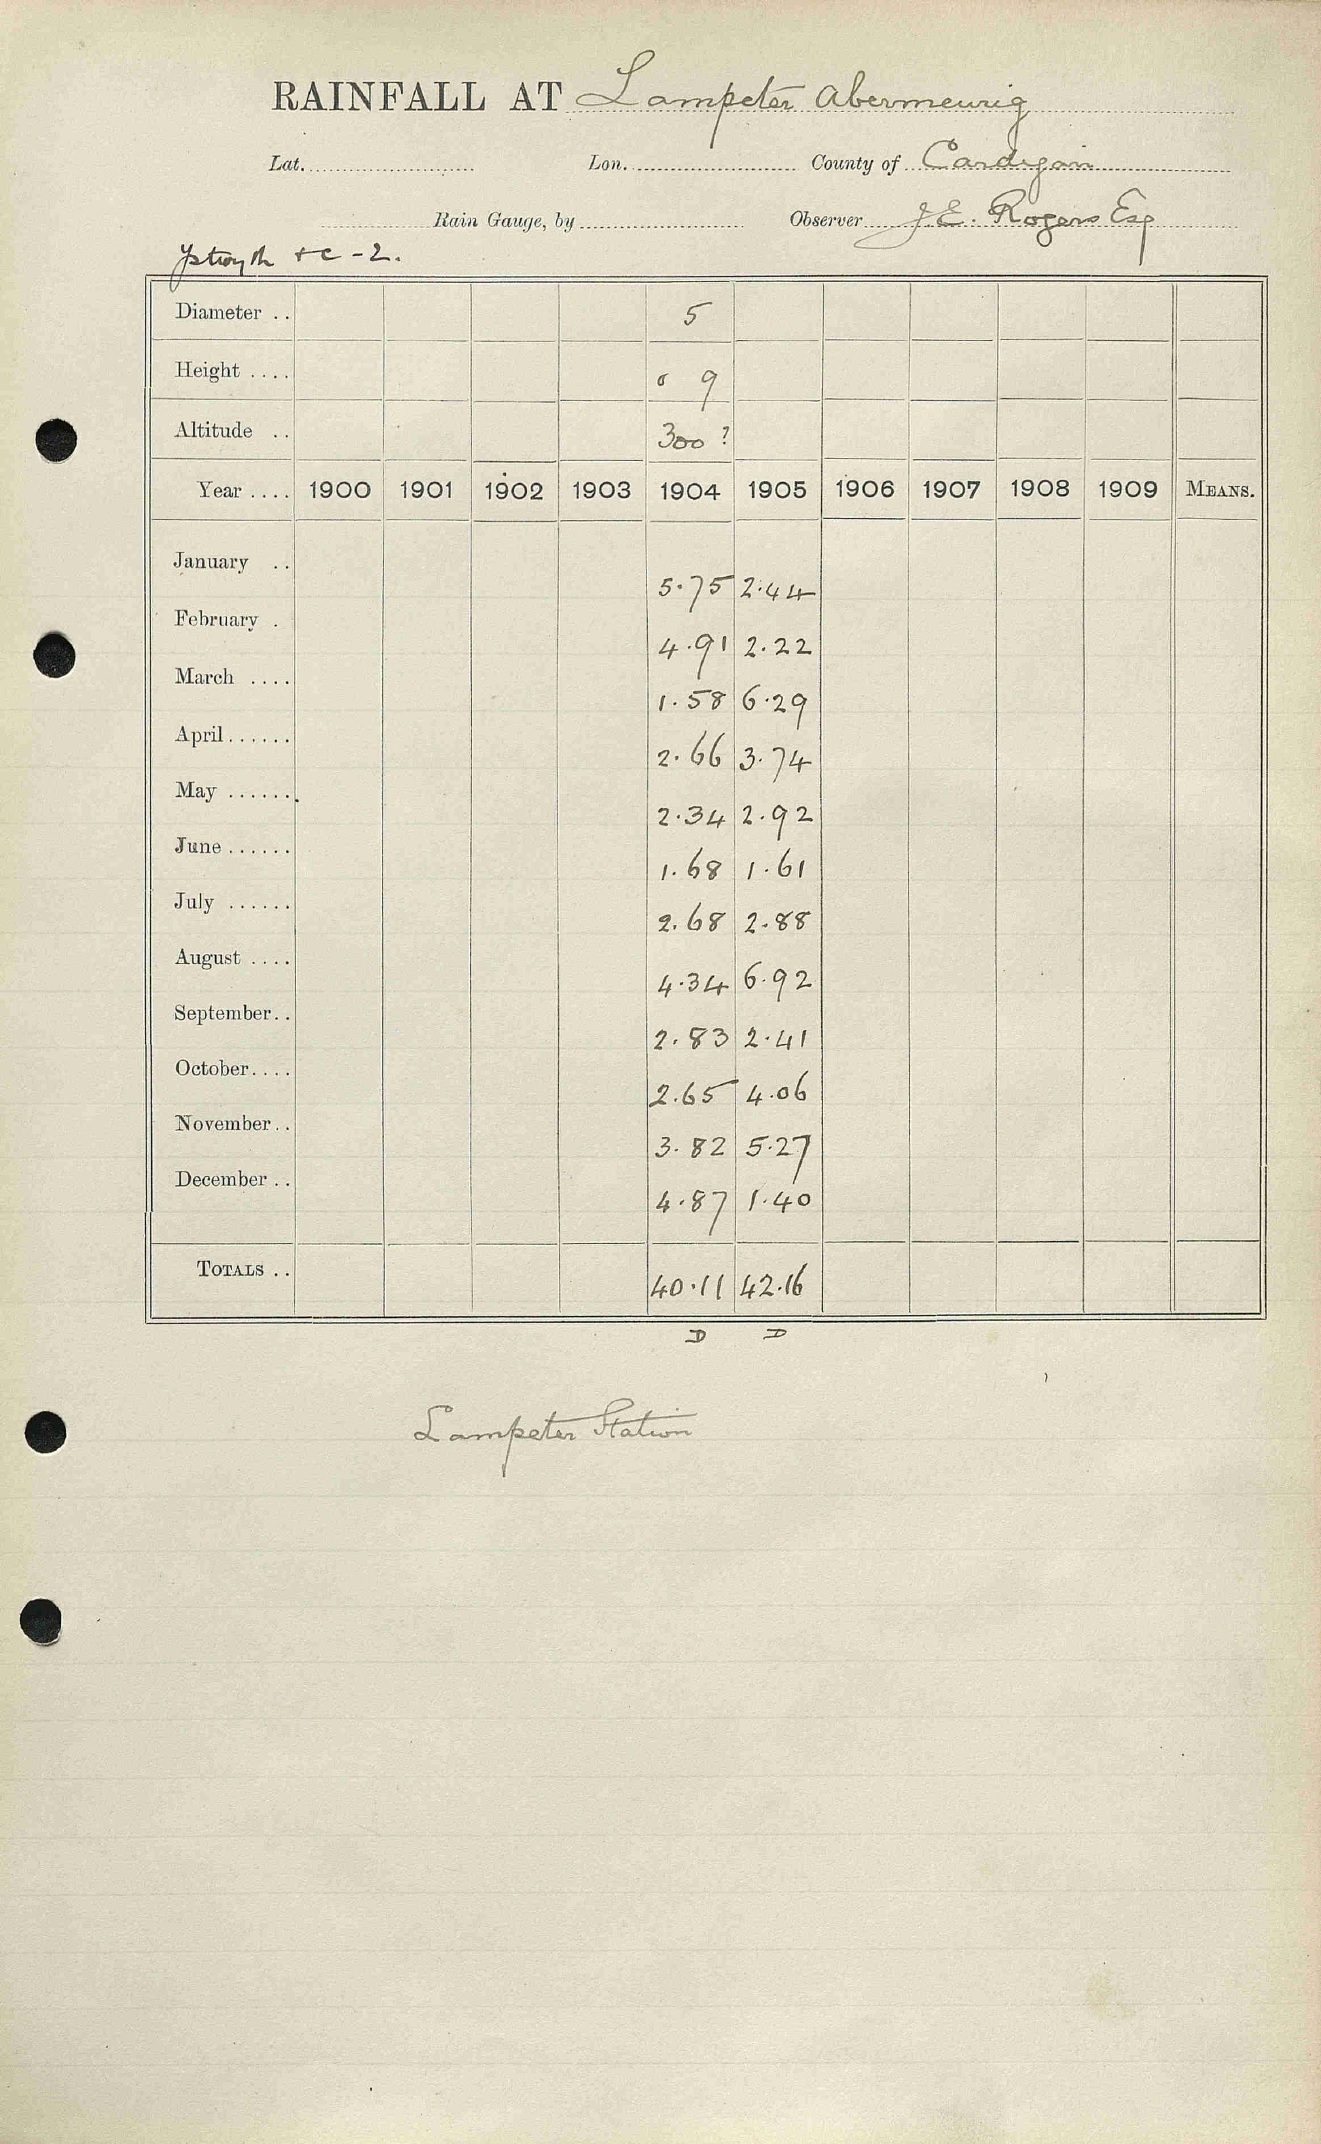 RAINFALL AT Lampeter Abermeurig
Lat. Lon. County of Cardigan
Rain Gauge, by Observer J.E. Rogers Esq
Ystwyth &c - 2.
Diameter .. 5
Height .... 0 9
Altitude .. 300 ?
Year .... 1900 1901 1902 1903 1904 1905 1906 1907 1908 1909 MEANS.
January .. 5.75 2.44
February . 4.91 2.22
March .... 1.58 6.29
April...... 2.66 3.74
May ...... 2.34 2.92
June ...... 1.68 1.61
July ...... 2.68 2.88
August .... 4.34 6.92
September.. 2.83 2.41
October.... 2.65 4.06
November.. 3.82 5.27
December .. 4.87 1.40
TOTALS .. 40.11 42.16
D D
Lampeter Station